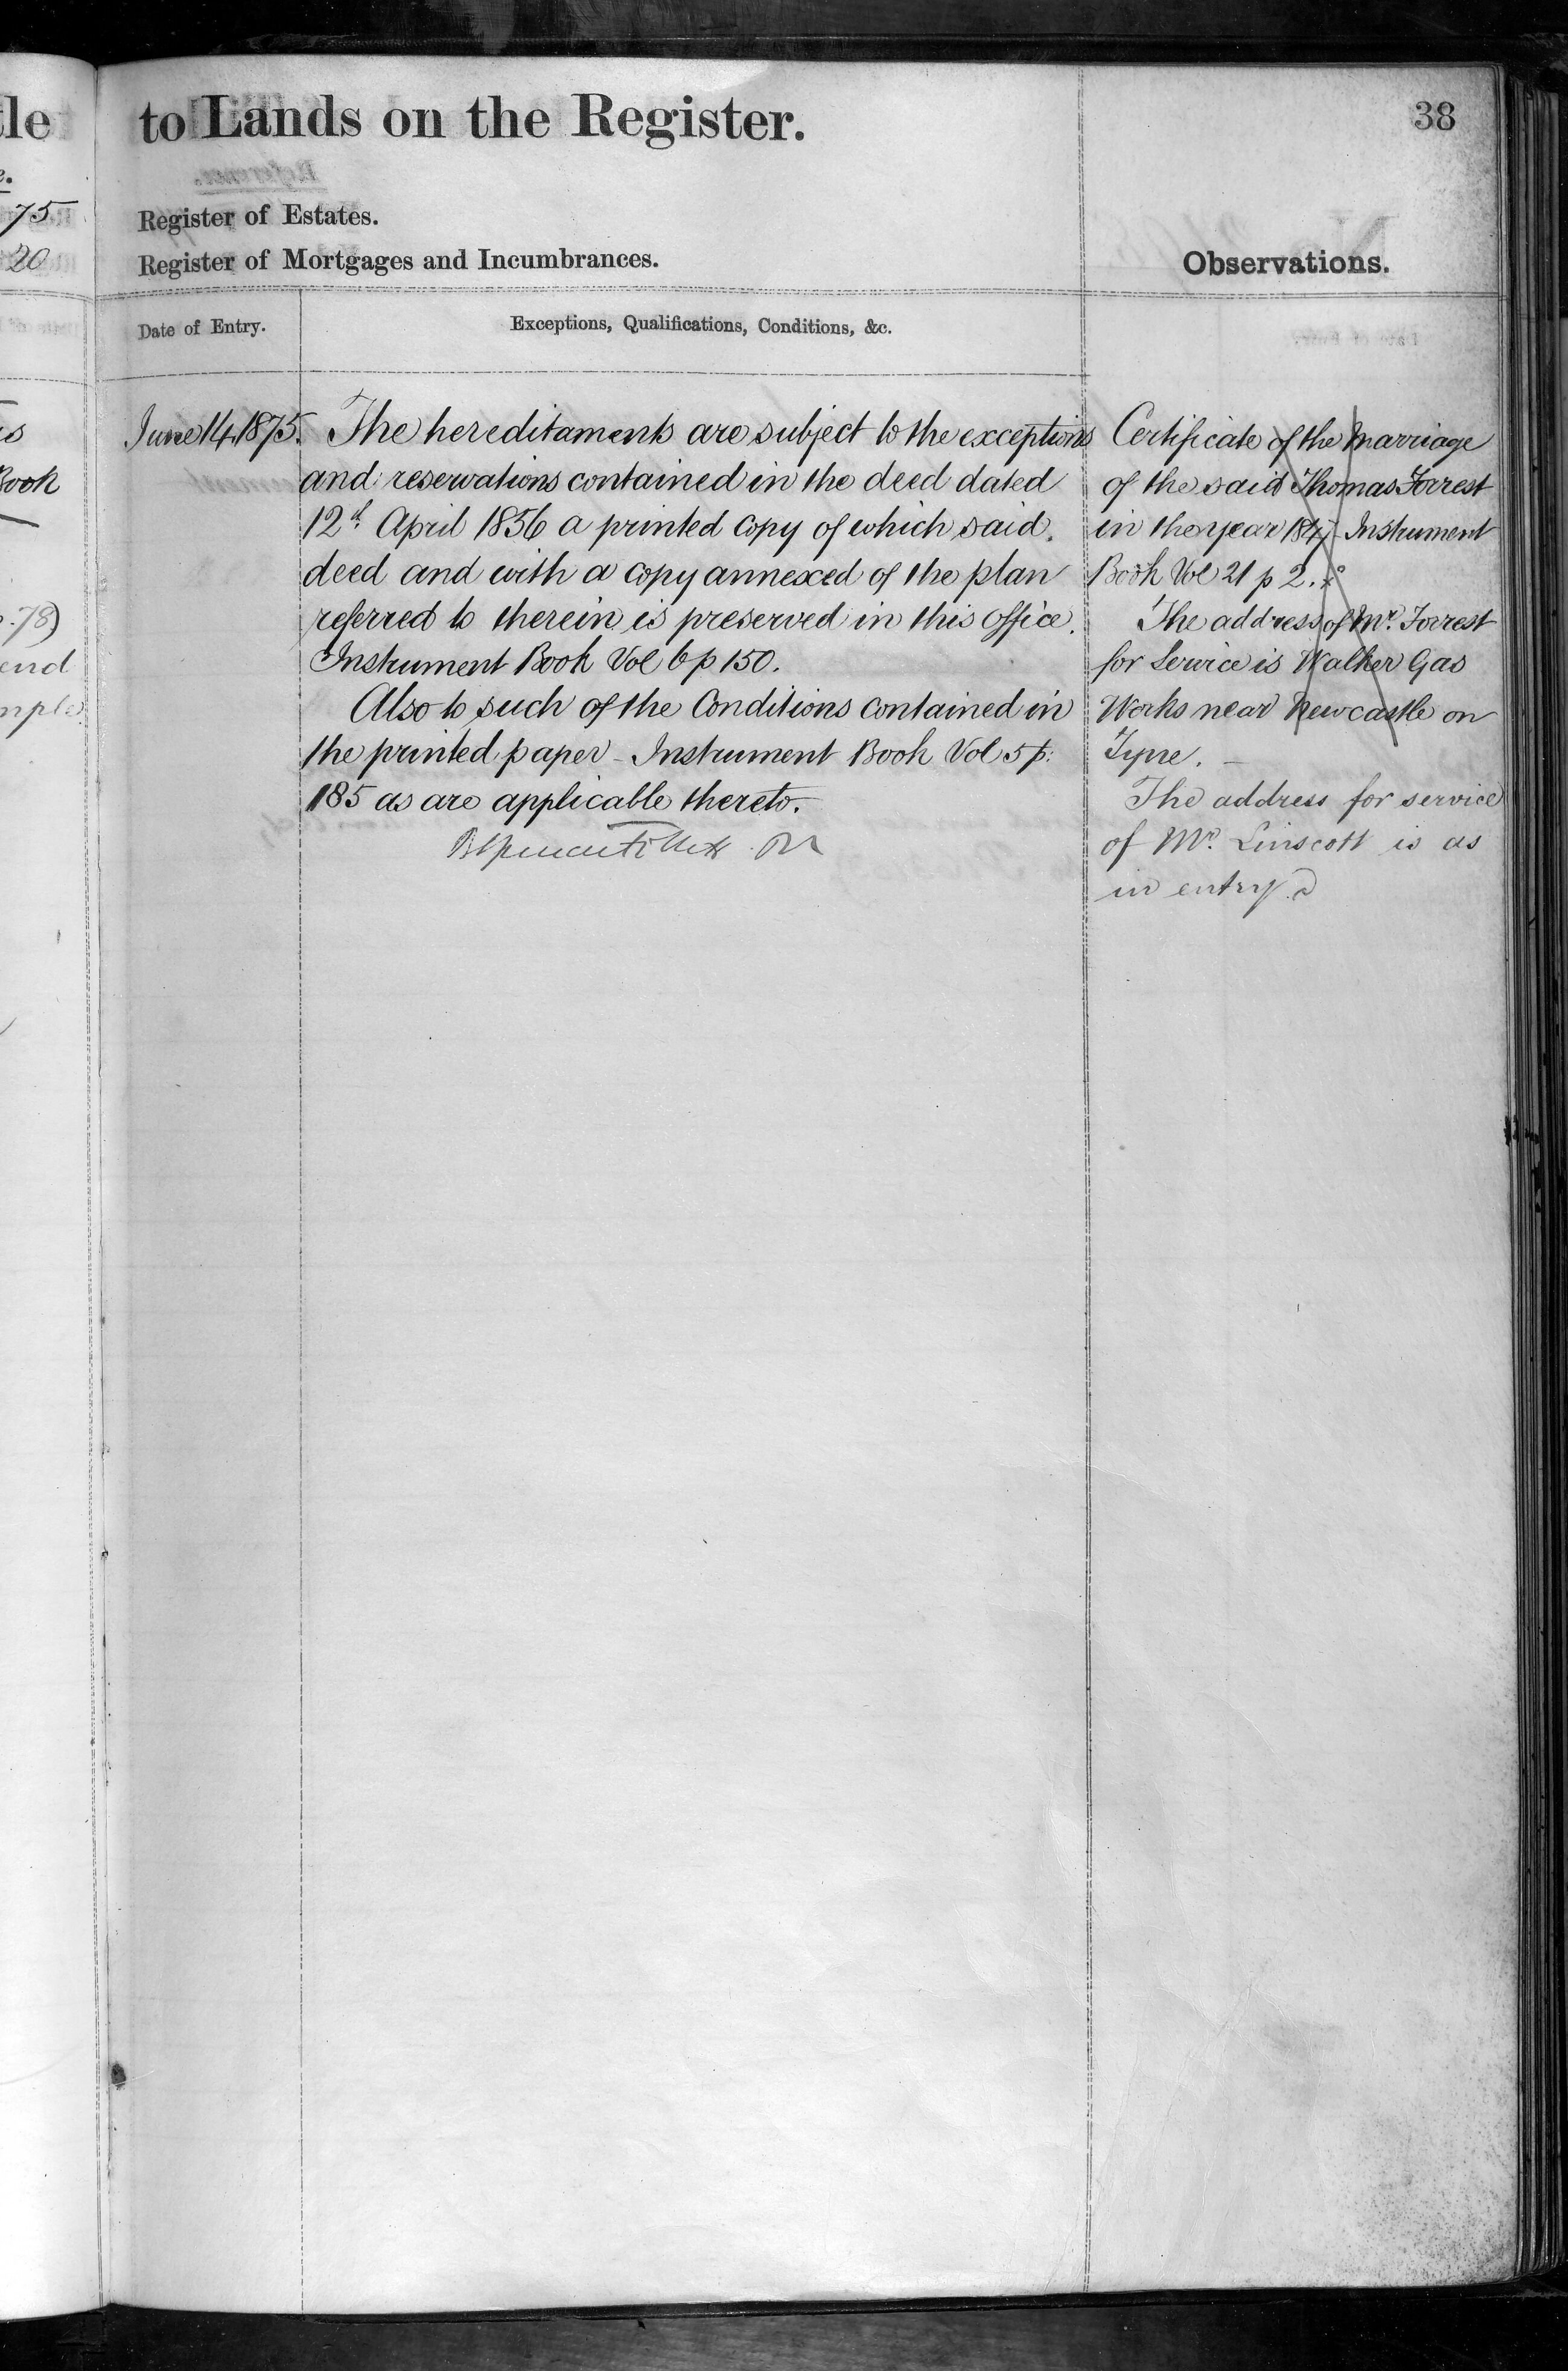 tle
to Lands on the Register.
38
e.
75
20
Register of Estates.
Register of Mortgages and Incumbrances.
Observations.
Date of Entry.
Exceptions, Qualifications, Conditions, &c.
June 14, 1875.
The hereditaments are subject to the exceptions
and reservations contained in the deed dated
12th April 1856 a printed copy of which said
deed and with a copy annexed of the plan
referred to therein is preserved in this office.
Instrument Book Vol 6 p 150.
Also to such of the Conditions contained in
the printed paper - Instrument Book Vol 5 p:
185 as are applicable thereto.
Certificate of the Marriage
of the said Thomas Forrest
in the year Instrument
Book Vol 21 p 2.
The address of Mr. Forrest
for Service is Walker Gas
Works near Newcastle on
Tyne.
The address for service
of Mr. Linscott is as
in entry
Book
78)
end